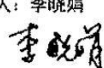 人：李晓娟
李晓娟